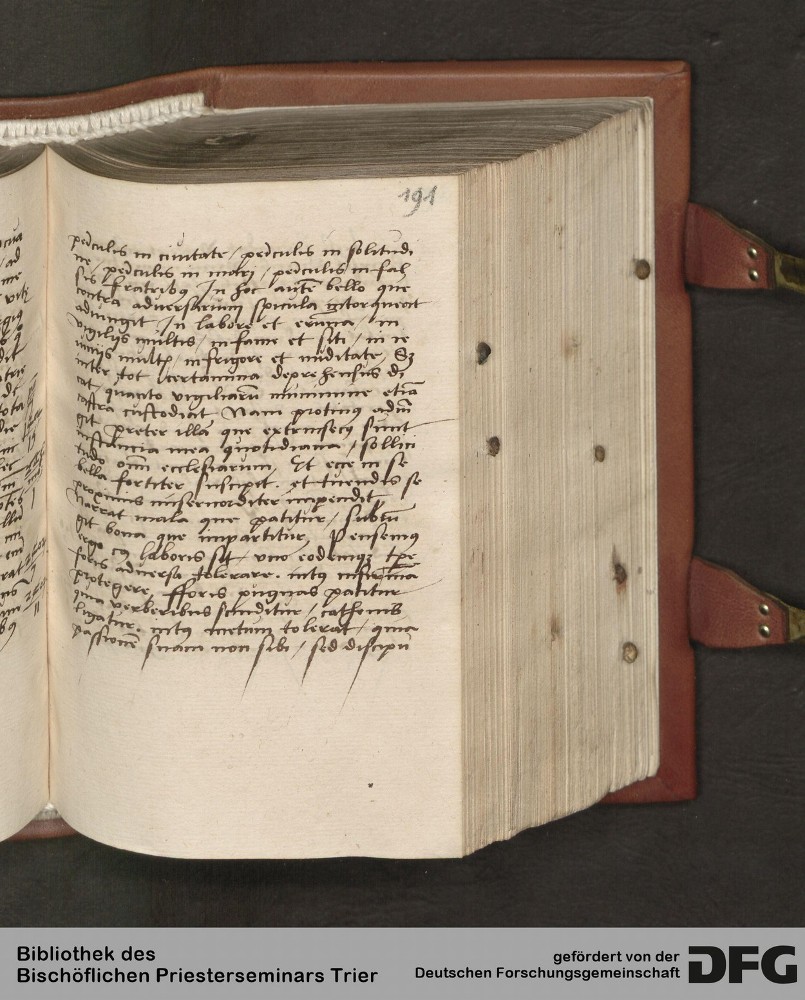 191
periculis in ciuitate / periculis in solitudi
ne / periculis in mari / periculis in fal
sis fratribus In hoc autē bello que
contra aduersarium spicula intorqueat
adiungit In labore et erumna / in
vigilijs multis / in fame et siti / in ie
iunijs multis / in frigore et nuditate, Sz
inter tot certamina deprehensus di
cat, quanto vigiliarū munimine etiā
castra custodiat Nam protinus adiū
git preter illa que extrinsecus sunt
instancia mea quotidiana / sollici
tudo omī ecclesiarum, Et ecce in se
bella fortiter suscipit, et tuendis se
proximis misericorditer impendit
Narrat mala que patitur / subiū
git bona que impartitur, Pensemus
ergo cuius laboris sit, vno eodemqz tpe
foris aduersa tolerare, intus infirma
protegere, fforis pugnas patitur
quia verberibus scinditur, cathenis
ligatur, intus metum tolerat, quia
passionē suam non sibi / sed discipu
Bibliothek des
Bischöflichen Priesterseminars Trier
gefördert von der
Deutschen Forschungsgemeinschaft
DFG